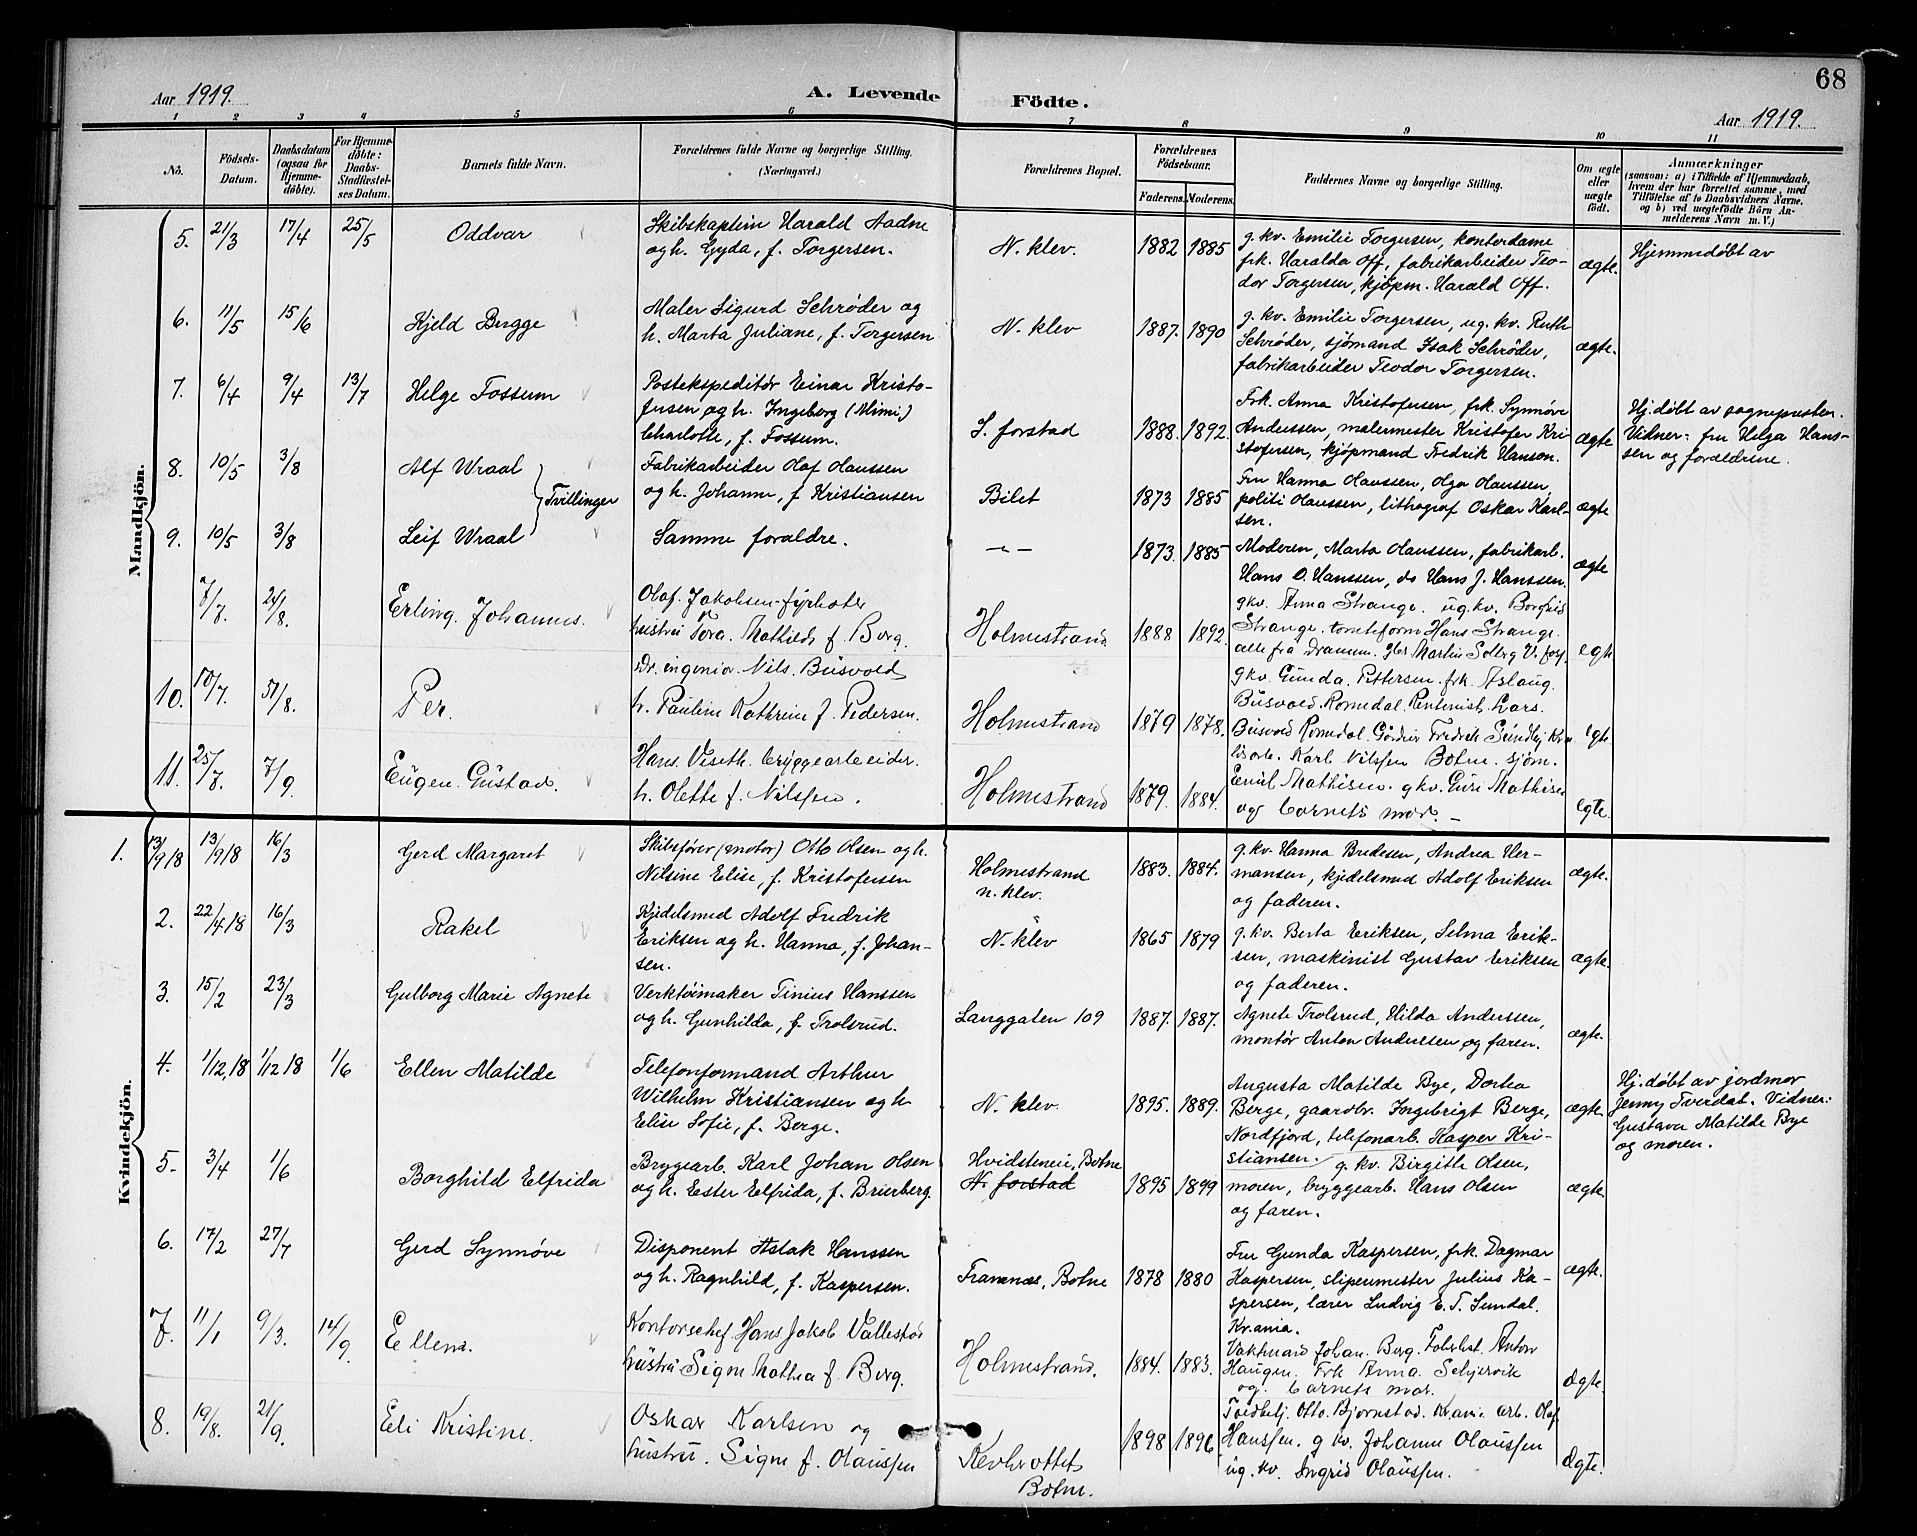 68
Aar 1919. A. Levende Födte. Aar 1919.
1 2 3 4 5 6 7 8 9 10 11
No. Födsels-Datum. Daabsdatum (ogsaa for Hjemme-döbte). For Hjemme-döbte: Daabs-Stadfæstel-ses Datum. Barnets fulde Navn. Forældrenes fulde Navne og borgerlige Stilling. (Næringsvei.) Forældrenes Bopæl. Forældrenes Födselsaar. Faderens. Moderens. Faddernes Navne og borgerlige Stilling. Om ægte eller uægte födt. Anmærkninger (saasom: a) i Tilfælde af Hjemmedaab, hvem der har forrettet samme, med Tilföielse af to Daabsvidners Navne, og b) ved uægtefödte Börn Anmelderens Navn m. V.)
Mandkjön.
5. 21/3 17/4 25/5 Oddvar
Skibskaptein Harald Aadne
og h. Gyda, f. Torgersen.
N. klev. 1882 1885
g. kv. Emilie Torgersen, kontordame
frk. Haralda Off, fabrikarbeider Teo-
dor Torgersen, kjøpm. Harald Off.
ægte. Hjemmedøbt av
6. 11/5 15/6 Kjeld Brygge
Maler Sigurd Schrøder og
h. Marta Juliane, f. Torgersen
N. klev 1887. 1890
g. kv. Emilie Torgersen, ug. kv. Ruth
Schrøder, sjømand Isak Schrøder,
fabrikarbeider Teodor Torgersen.
ægte.
7. 6/4 9/4 13/7 Helge Fossum
Postekspeditør Einar Kristo-
fersen og h. Ingeborg (Mimi)
Charlotte, f. Fossum.
S. forstad 1888. 1892.
Frk. Anna Kristofersen, frk. Synnøve
Anderssen, malermester Kristofer Kri-
stofersen, kjøpmand Fredrik Hanson.
ægte
Hj. døbt av sognepresten.
Vidner: fru Helga Hans-
sen og forældrene.
8. 10/5 3/8 Alf Wraal
Tvillinger
Fabrikarbeider Olaf Olaussen
og h. Johanne, f. Kristiansen
Bilet 1873 1885
Fru Hanna Olaussen, Olga Olaussen,
politi Olaussen, lithograf Oskar Karl-
sen.
ægte
9. 10/5 3/8 Leif Wraal
Samme foraldre.
— " — 1873 1885
Moderen, Marta Olaussen, fabrikarb.
Hans O. Hanssen, do Hans J. Hanssen.
ægte
7/7. 24/8. Erling Johannes.
Olaf Jakobsen fyrbøter
hustru Tora Mathilde f. Berg.
Holmestrand 1888 1892.
gkv. Anna Strange. ug. kv. Borghild
Strange. Hans Strange.
alle fra Dramm. Martin Solberg V. fosp.
egte
10. 10/7. 31/8. Per.
Dr. ingeniør Nils Busvold
h. Pauline Kathrine f. Pedersen.
Holmestrand 1879 1878.
gkv. Gunda Pettersen. frk. Aslaug
Busvold Romedal. Rentenist Lars
Busvold Romedal. Fredrik Sundby
egte
11. 25/7. 7/9. Eugen Gustav.
Hans Viseth bryggearbeider.
h. Olette f. Nilssen.
Holmestrand 1879. 1884.
Karl Nilssen Botne. sjøm.
Emil Mathisen. gkv. Guri Mathisen
og barnets mor. —
egte.
Kvindekjön.
1. 13/9 18 13/9 18 16/3 Gerd Margaret
Skibsfører (motor) Otto Olsen og h.
Nilsine Elise, f. Kristofersen
Holmestrand
n. klev. 1883. 1884.
g. kv. Hanna Bredesen, Andrea Her-
mansen, kjedelsmed Adolf Eriksen
og faderen.
ægte.
2. 22/4 18 16/3 Rakel
Kjedelsmed Adolf Fredrik
Eriksen og h. Hanna, f. Johan-
sen.
N. klev 1865 1879
g. kv. Berta Eriksen, Selma Erik-
sen, maskinist Gustav Eriksen
og faderen.
ægte.
3. 15/2 23/3 Gulborg Marie Agnete
Verktøimaker Tinius Hanssen
og h. Gunhilda, f. Trolsrud.
Langgaten 109 1887. 1887.
Agnete Trolsrud, Hilda Anderssen,
montør Anton Anderssen og faren.
ægte.
4. 1/12, 18 1/12 18 1/6 Ellen Matilde
Telefonformand Arthur
Wilhelm Kristiansen og h
Elise Sofie, f. Berge.
N. klev. 1895. 1889.
Augusta Matilde Bye, Dortea
Berge, gaardbr. Ingebrigt Berge,
Nordfjord, telefonarb. Kasper Kri-
stiansen.
ægte.
Hj. døbt av jordmor
Jenny Tverdal. Vidner:
Gustava Matilde Bye
og moren.
5. 3/4 1/6 Borghild Elfrida
Bryggearb. Karl Johan Olsen
og h. Ester Elfrida, f. Bruerberg
Hvidsteneie, Botne
N. forstad 1895 1899
g. kv. Birgitte Olsen,
moren, bryggearb. Hans Olsen
og faren.
ægte.
6. 17/2 27/7 Gerd Synnøve
Disponent Aslak Hanssen
og h. Ragnhild, f. Kaspersen.
Framnæs, Botne 1878 1880
Fru Gunda Kaspersen, frk. Dagmar
Kaspersen, sliperimester Julius Ka-
spersen, lærer Ludvig E. T. Sundal,
Kr.ania.
ægte.
7. 11/1 9/3. 14/9. Ellena.
Kontorschef Hans Jakob Vallestø
hustru Signe Mathea f. Berg.
Holmestrand. 1884. 1883.
Johan Berg. Anton
Haugen. Frk Anna Schjervik
og barnets mor.
Ægte.
8. 19/8. 21/9. Eli Kristine.
Oskar Karlsen og
hustru Signe f. Olaussen
Botne. 1898 1896
Otto Bjørnstad. Kr.ania arb. Olaf
Hanssen. g kv. Johanne Olaussen
ug. kv. Ingrid Olaussen.
Ægte.